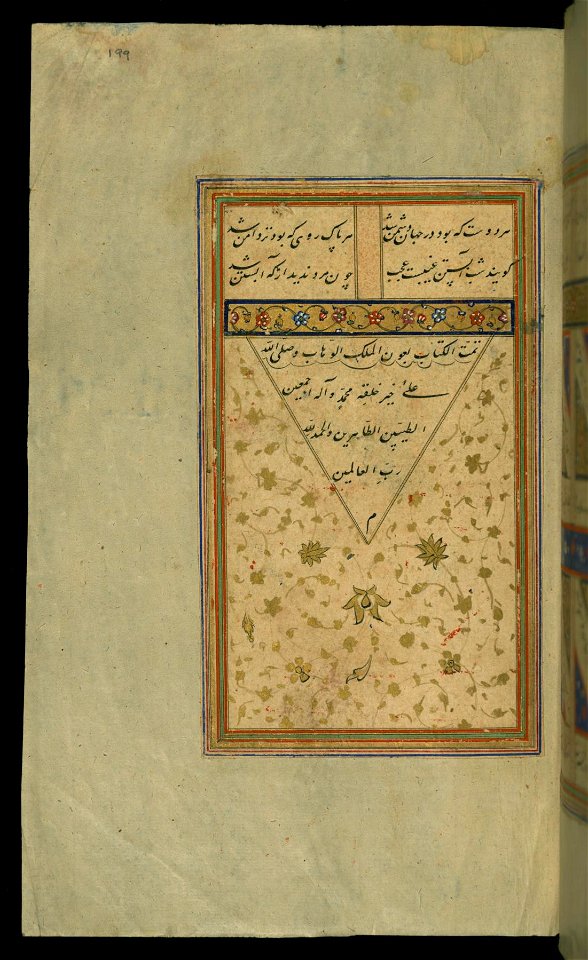 ۱۹۹
هر دوست که بود در جهان دشمن شد هر پاک روی که بود تردامن شد
گویند شب آبستن غیبست عجب چون مرد ندید از که آبستن شد
تمت الکتاب بعون الملک الوهاب وصلی الله
علی خیر خلقه محمد و آله اجمعین
الطیبین الطاهرین والحمد لله
رب العالمین
م